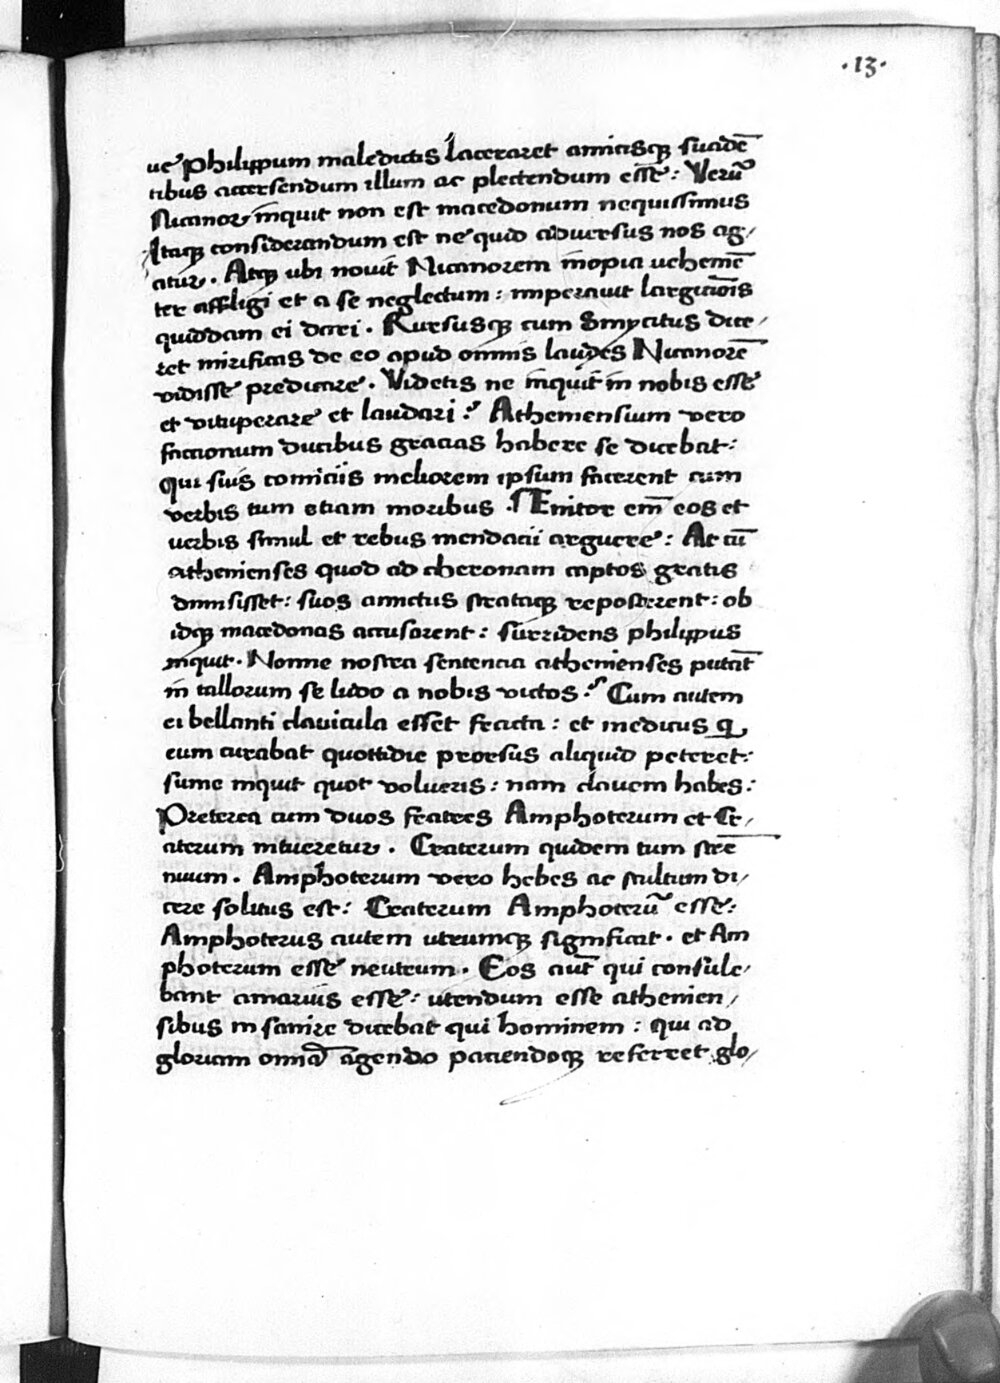 ·13·
ue Philippum maledictis laceraret amicisqꝫ suadē
tibus accersendum illum ac plectendum esse: Verū
Nicanor inquit non est macedonum nequissimus
Itaqꝫ considerandum est ne quid adversus nos ag/
atur. Atqꝫ ubi novit Nicanorem inopia vehemē
ter affligi et a se neglectum: imperavit largicōis
quiddam ei dari. Rursusqꝫ cum Smycitus dice/
ret mirificas de eo apud omnis laudes Nicanorē
vidisse predicare. Videtis ne inquit in nobis esse
et vituperare et laudari? Atheniensium vero
factionum ducibus gracias habere se dicebat:
Qui suis conviciis meliorem ipsum facerent cum
verbis tum etiam moribus. Enitor em̄ eos et
uerbis simul et rebus mendacii arguere: At cū
athenienses quod ad cheronam captos gratis
dimisisset: suos amictus strataqꝫ reposcerent: ob
idqꝫ macedonas accusarent: surridens philippus
inquit. Nonne nostra sentencia athenienses putāt
in tallorum se ludo a nobis victos? Cum autem
ei bellanti clavicula esset fracta: et medicus q
eum curabat quottidie prorsus aliquid peteret:
sume inquit quot volueris: nam clavem habes:
Preterea cum duos fratres Amphoterum et Cr/
aterum intueretur. Craterum quidem tum strē
nuum. Amphoterum vero hebes ac stultum di/
cere solitus est: Craterum Amphoterū esse:
Amphoterus autem utrumqꝫ significat. et Am
photerum esse neutrum. Eos aut̄ qui consule/
bant amarius esse: utendum esse athenien/
sibus insanire dicebat qui hominem: qui ad
gloriam omīa agendo paciendoqꝫ referret glo/